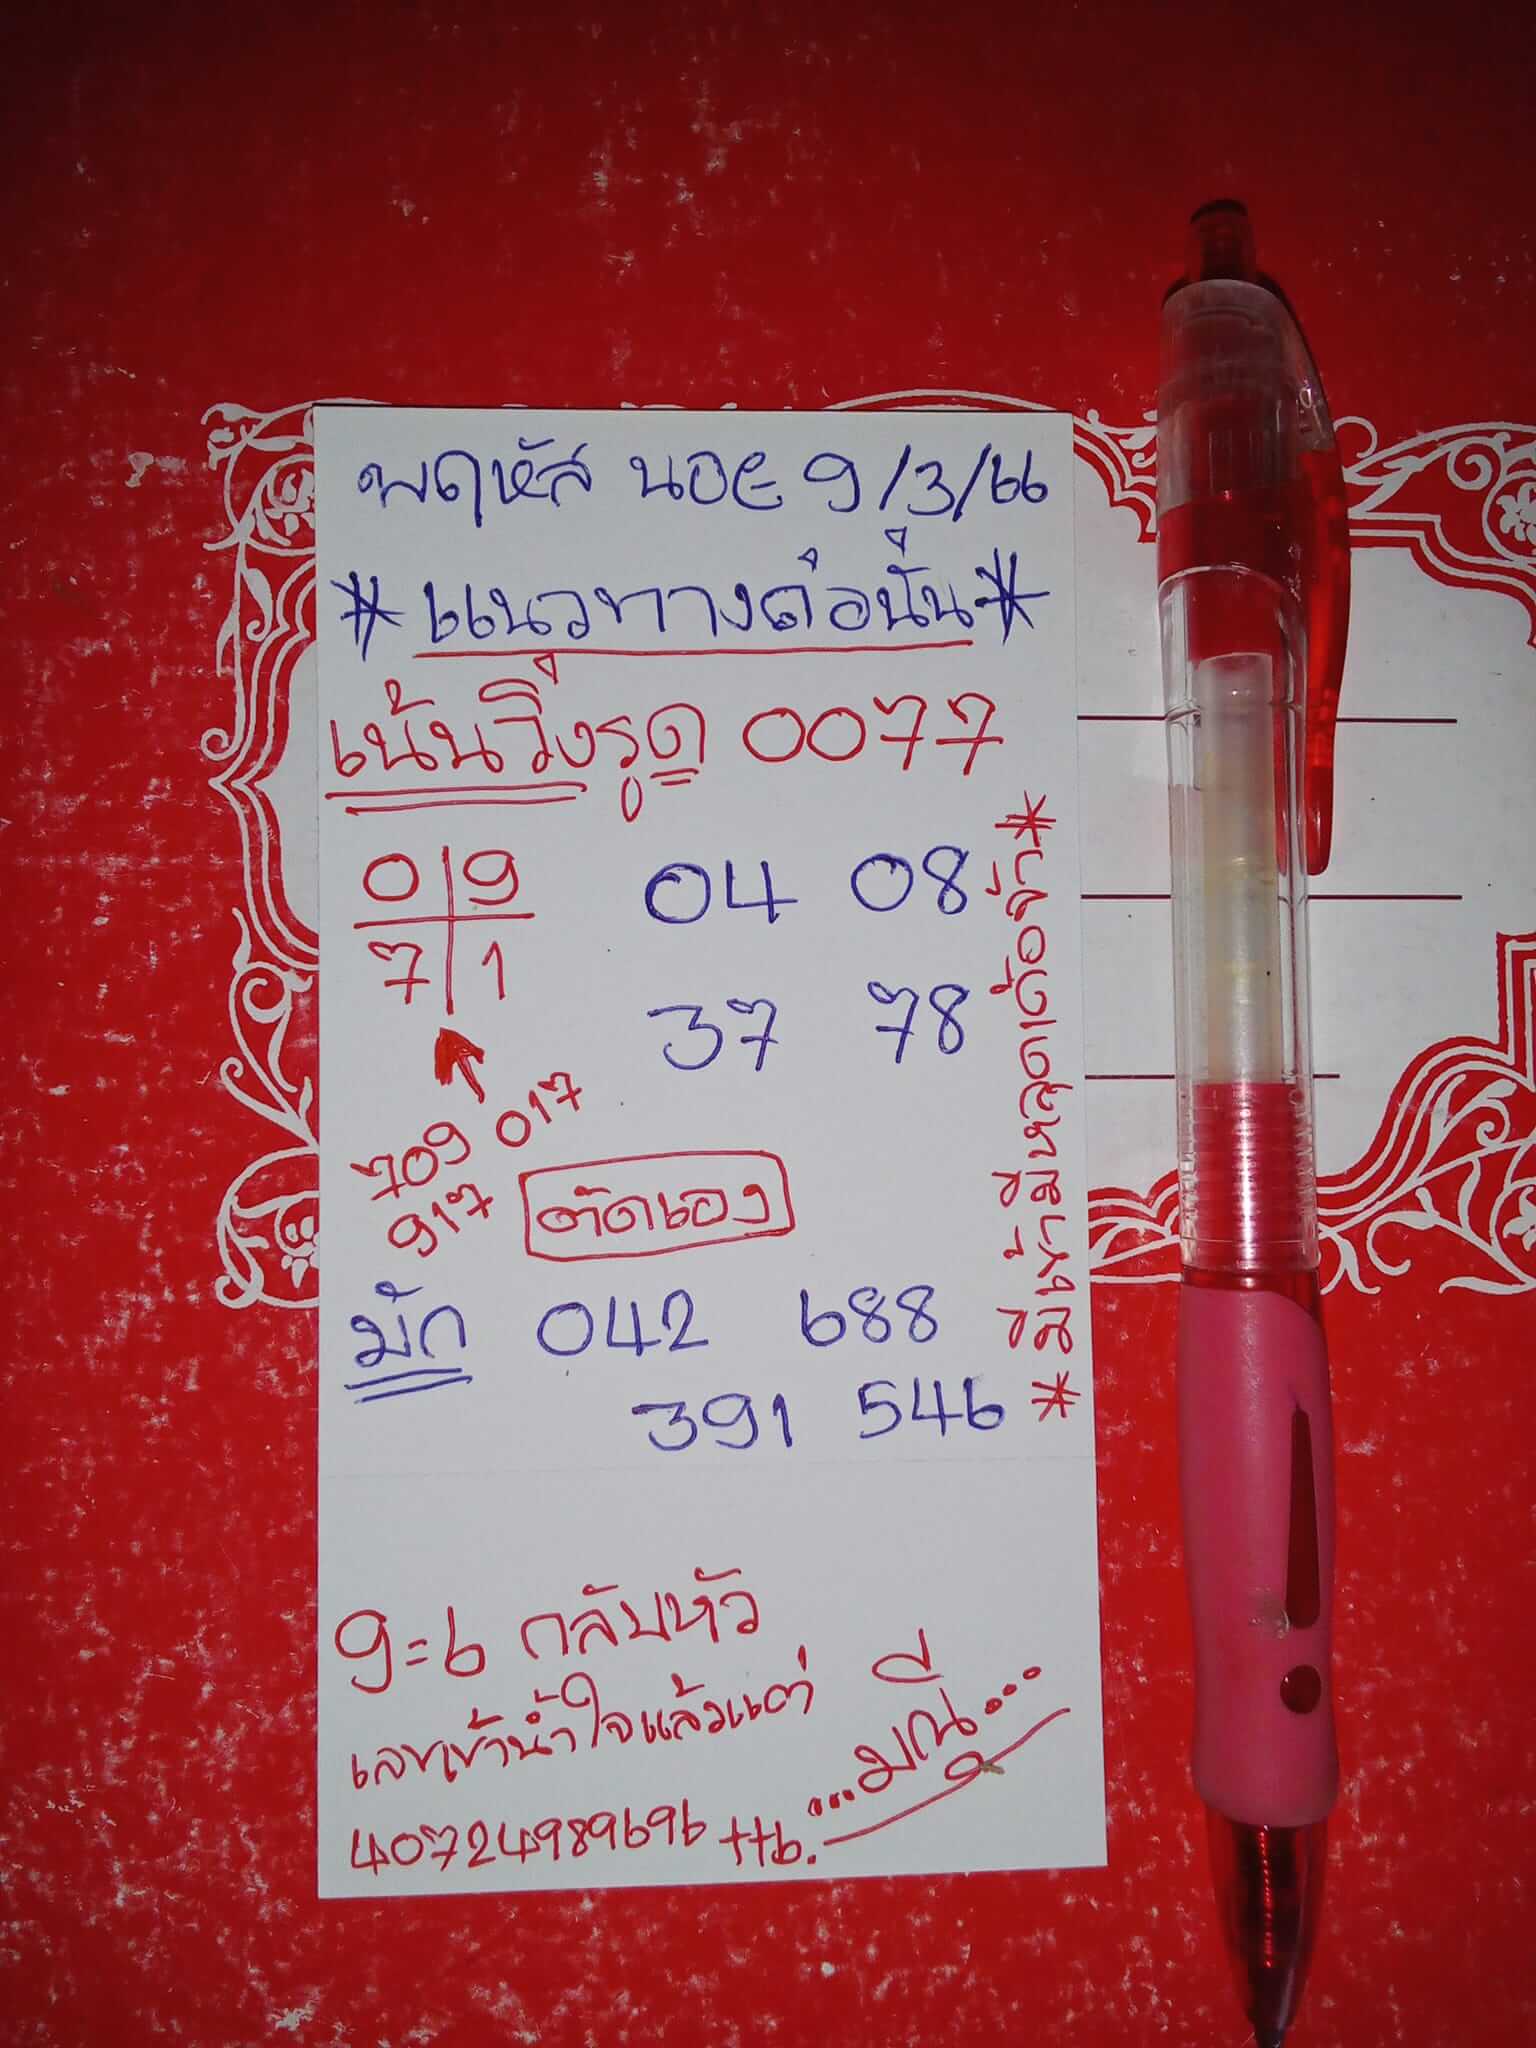 พฤหัส นอย 9/3/66
*แนวทางต่อนั่น*
เน้นวิ่งรูด 0077
0 9
7 1
04 08
37 78
709 017
917
ตัดเอง
มัก 042 688
391 546
*มีเข้ามีหลุดเด้อจ้า*
9=6 กลับหัว
เลขเข้าน้ำใจแล้วแต่
407249896 96 ttb.
...มณี...